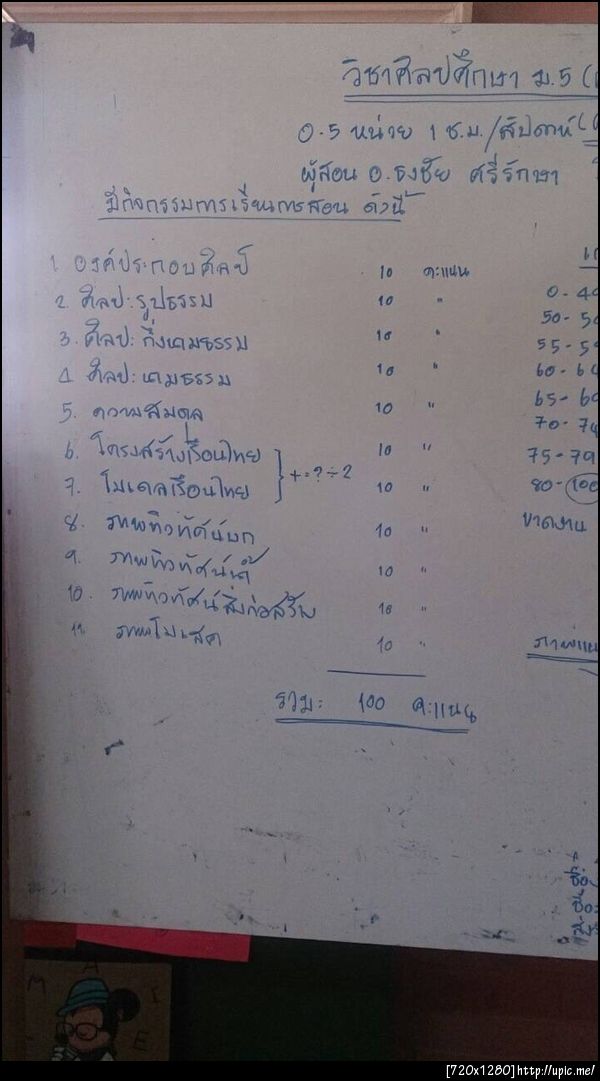 วิชาศิลปศึกษา ม.5 (
0.5 หน่วย 1 ช.ม./สัปดาห์ (
ผู้สอน อ.ธงชัย ศรีรักษา
มีกิจกรรมการเรียนการสอน ดังนี้
1 องค์ประกอบศิลป์ 10 คะแนน
2. ศิลปะรูปธรรม 10 "
3. ศิลปะกึ่งนามธรรม 10 "
4 ศิลปะนามธรรม 10 "
5. ความสมดุล 10 "
6. โครงสร้างเรือนไทย 10 "
7. โมเดลเรือนไทย 10 "
} + = ? ÷ 2
8. ภาพทิวทัศน์บก 10 "
9. ภาพทิวทัศน์น้ำ 10 "
10. ภาพทิวทัศน์สิ่งก่อสร้าง 10 "
11 ภาพโมเสค 10 "
รวม: 100 คะแนน
0-4
50-5
55-5
60-6
65-6
70-74
75-79
80-100
ขาดงาน
M A I E
[720x1280]http://upic.me/